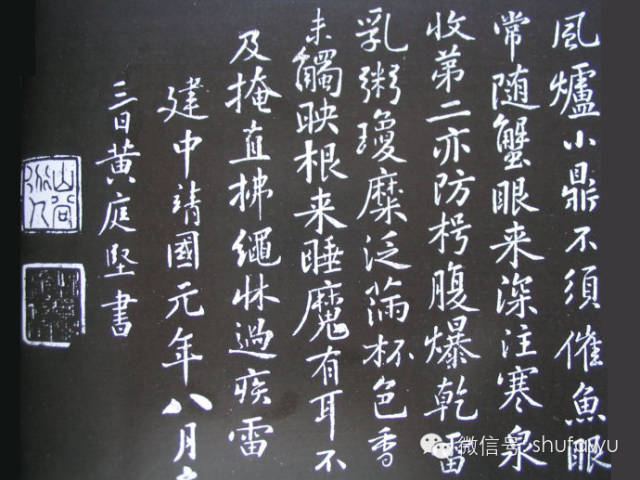 風爐小鼎不須催魚眼
常随蟹眼来深注寒泉
收第二亦防枵腹爆乾雷
乳粥瓊糜泛滿杯色香
未觸映根来睡魔有耳不
及掩直拂繩牀過疾雷
建中靖國元年八月
三日黃庭堅書
山谷
微信号: shufawu